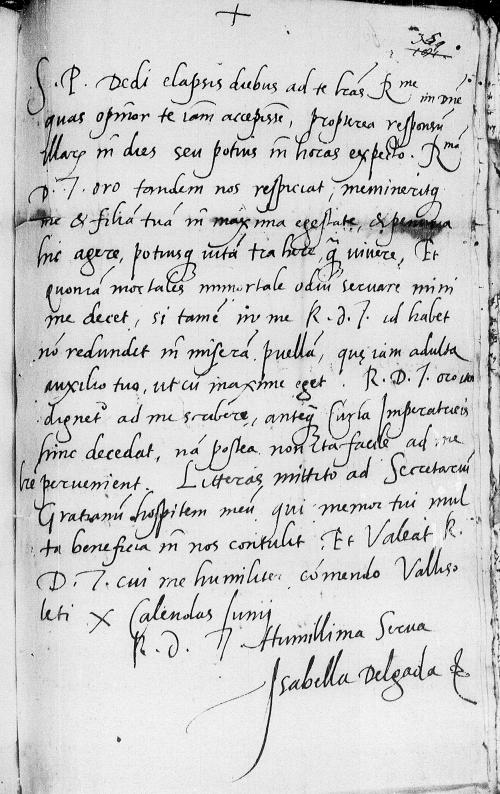 +
S. P. Dedi elapsis diebus ad te lr̃as R^me in Dñe
quas opinor te iam accepisse, propterea responsũ
illarũ in dies seu potius in horas expecto. R^mã
D. T. oro tandem nos respiciat, memineritq
me & filiã tuã in maxima egestate, & penuria
hic agere, potiusq vitã trahere q̃ vivere, Et
quoniã mortales immortale odiũ servare mini
me decet, si tamẽ in me R. d. T. id habet
nõ redundet in miserã puellã, quę iam adulta
auxilio tuo, ut cũ maxime eget. R. D. T. oro
dignet^r ad me scribere, anteq̃ Curia Imperatricis
hinc decedat, nã postea non ita facile ad me
pervenient. Litteras mittito ad Secretariũ
Gratianũ hospitem meũ, qui memor tui mul
ta beneficia in nos contulit. Et Valeat R.
D. T. cui me humiliter cõmendo Valliso
leti X Calendas Junij
R. d. T. Humillima Serva
Isabella Delgada